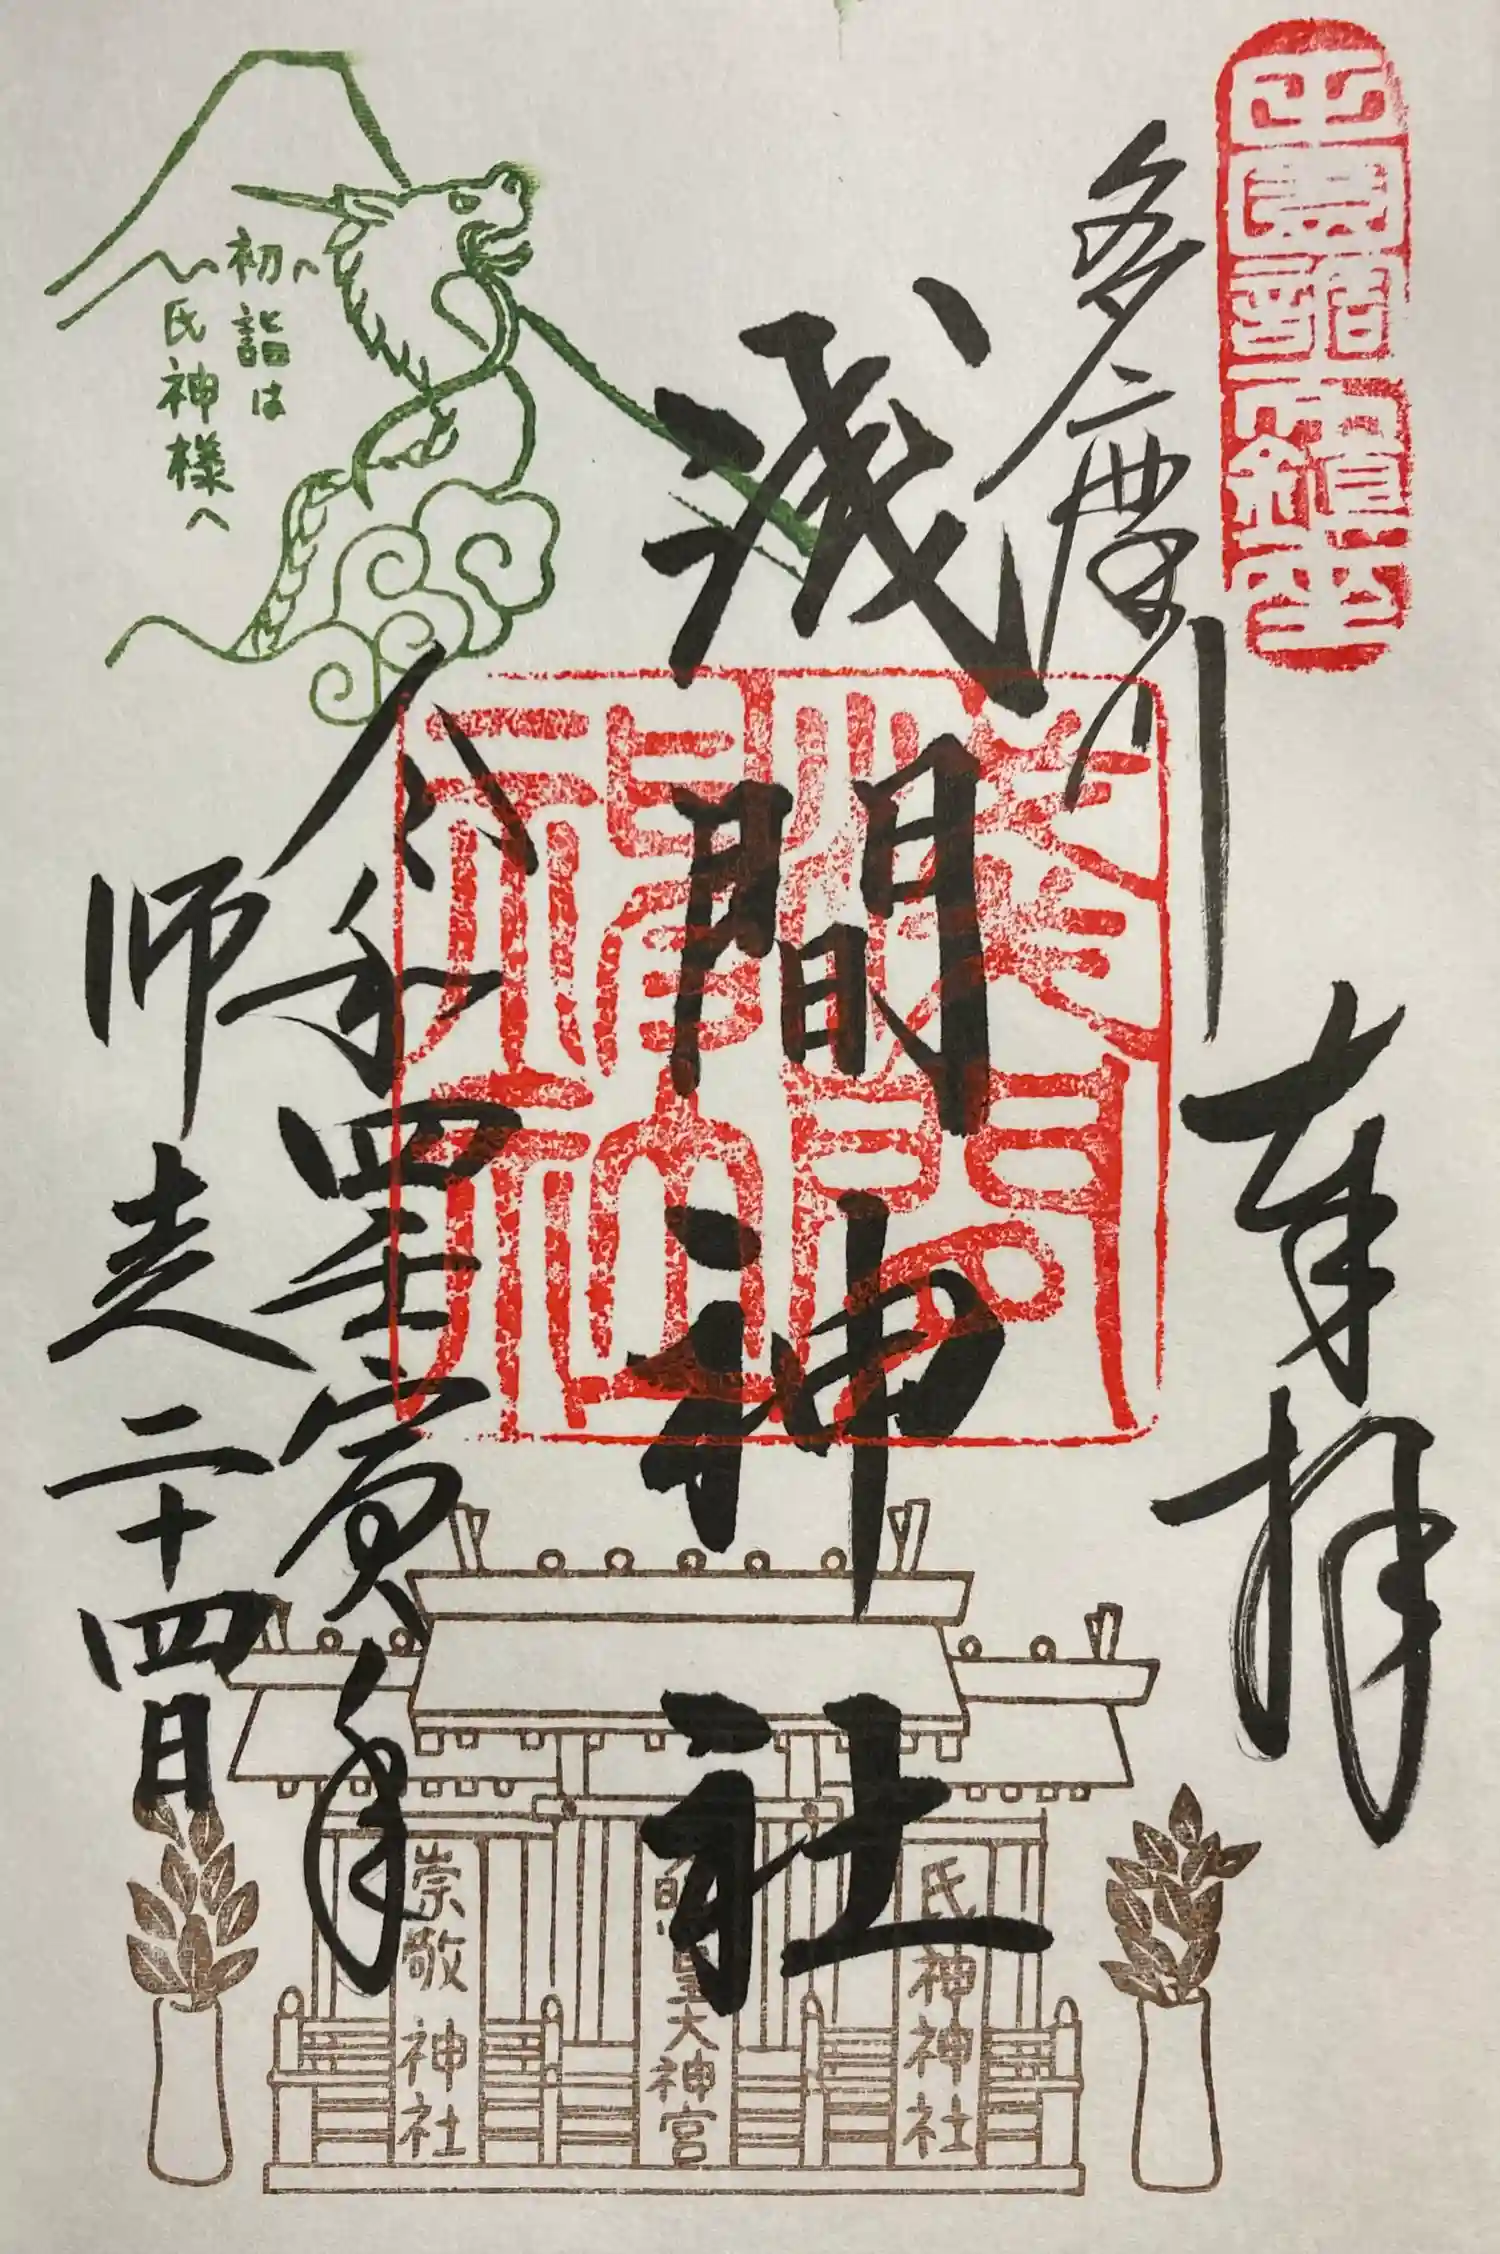 奉拝
多摩川
浅間神社
令和四壬寅年
師走二十四日
初詣は
氏神様へ
浅間神社
氏神神社
大神宮
崇敬神社